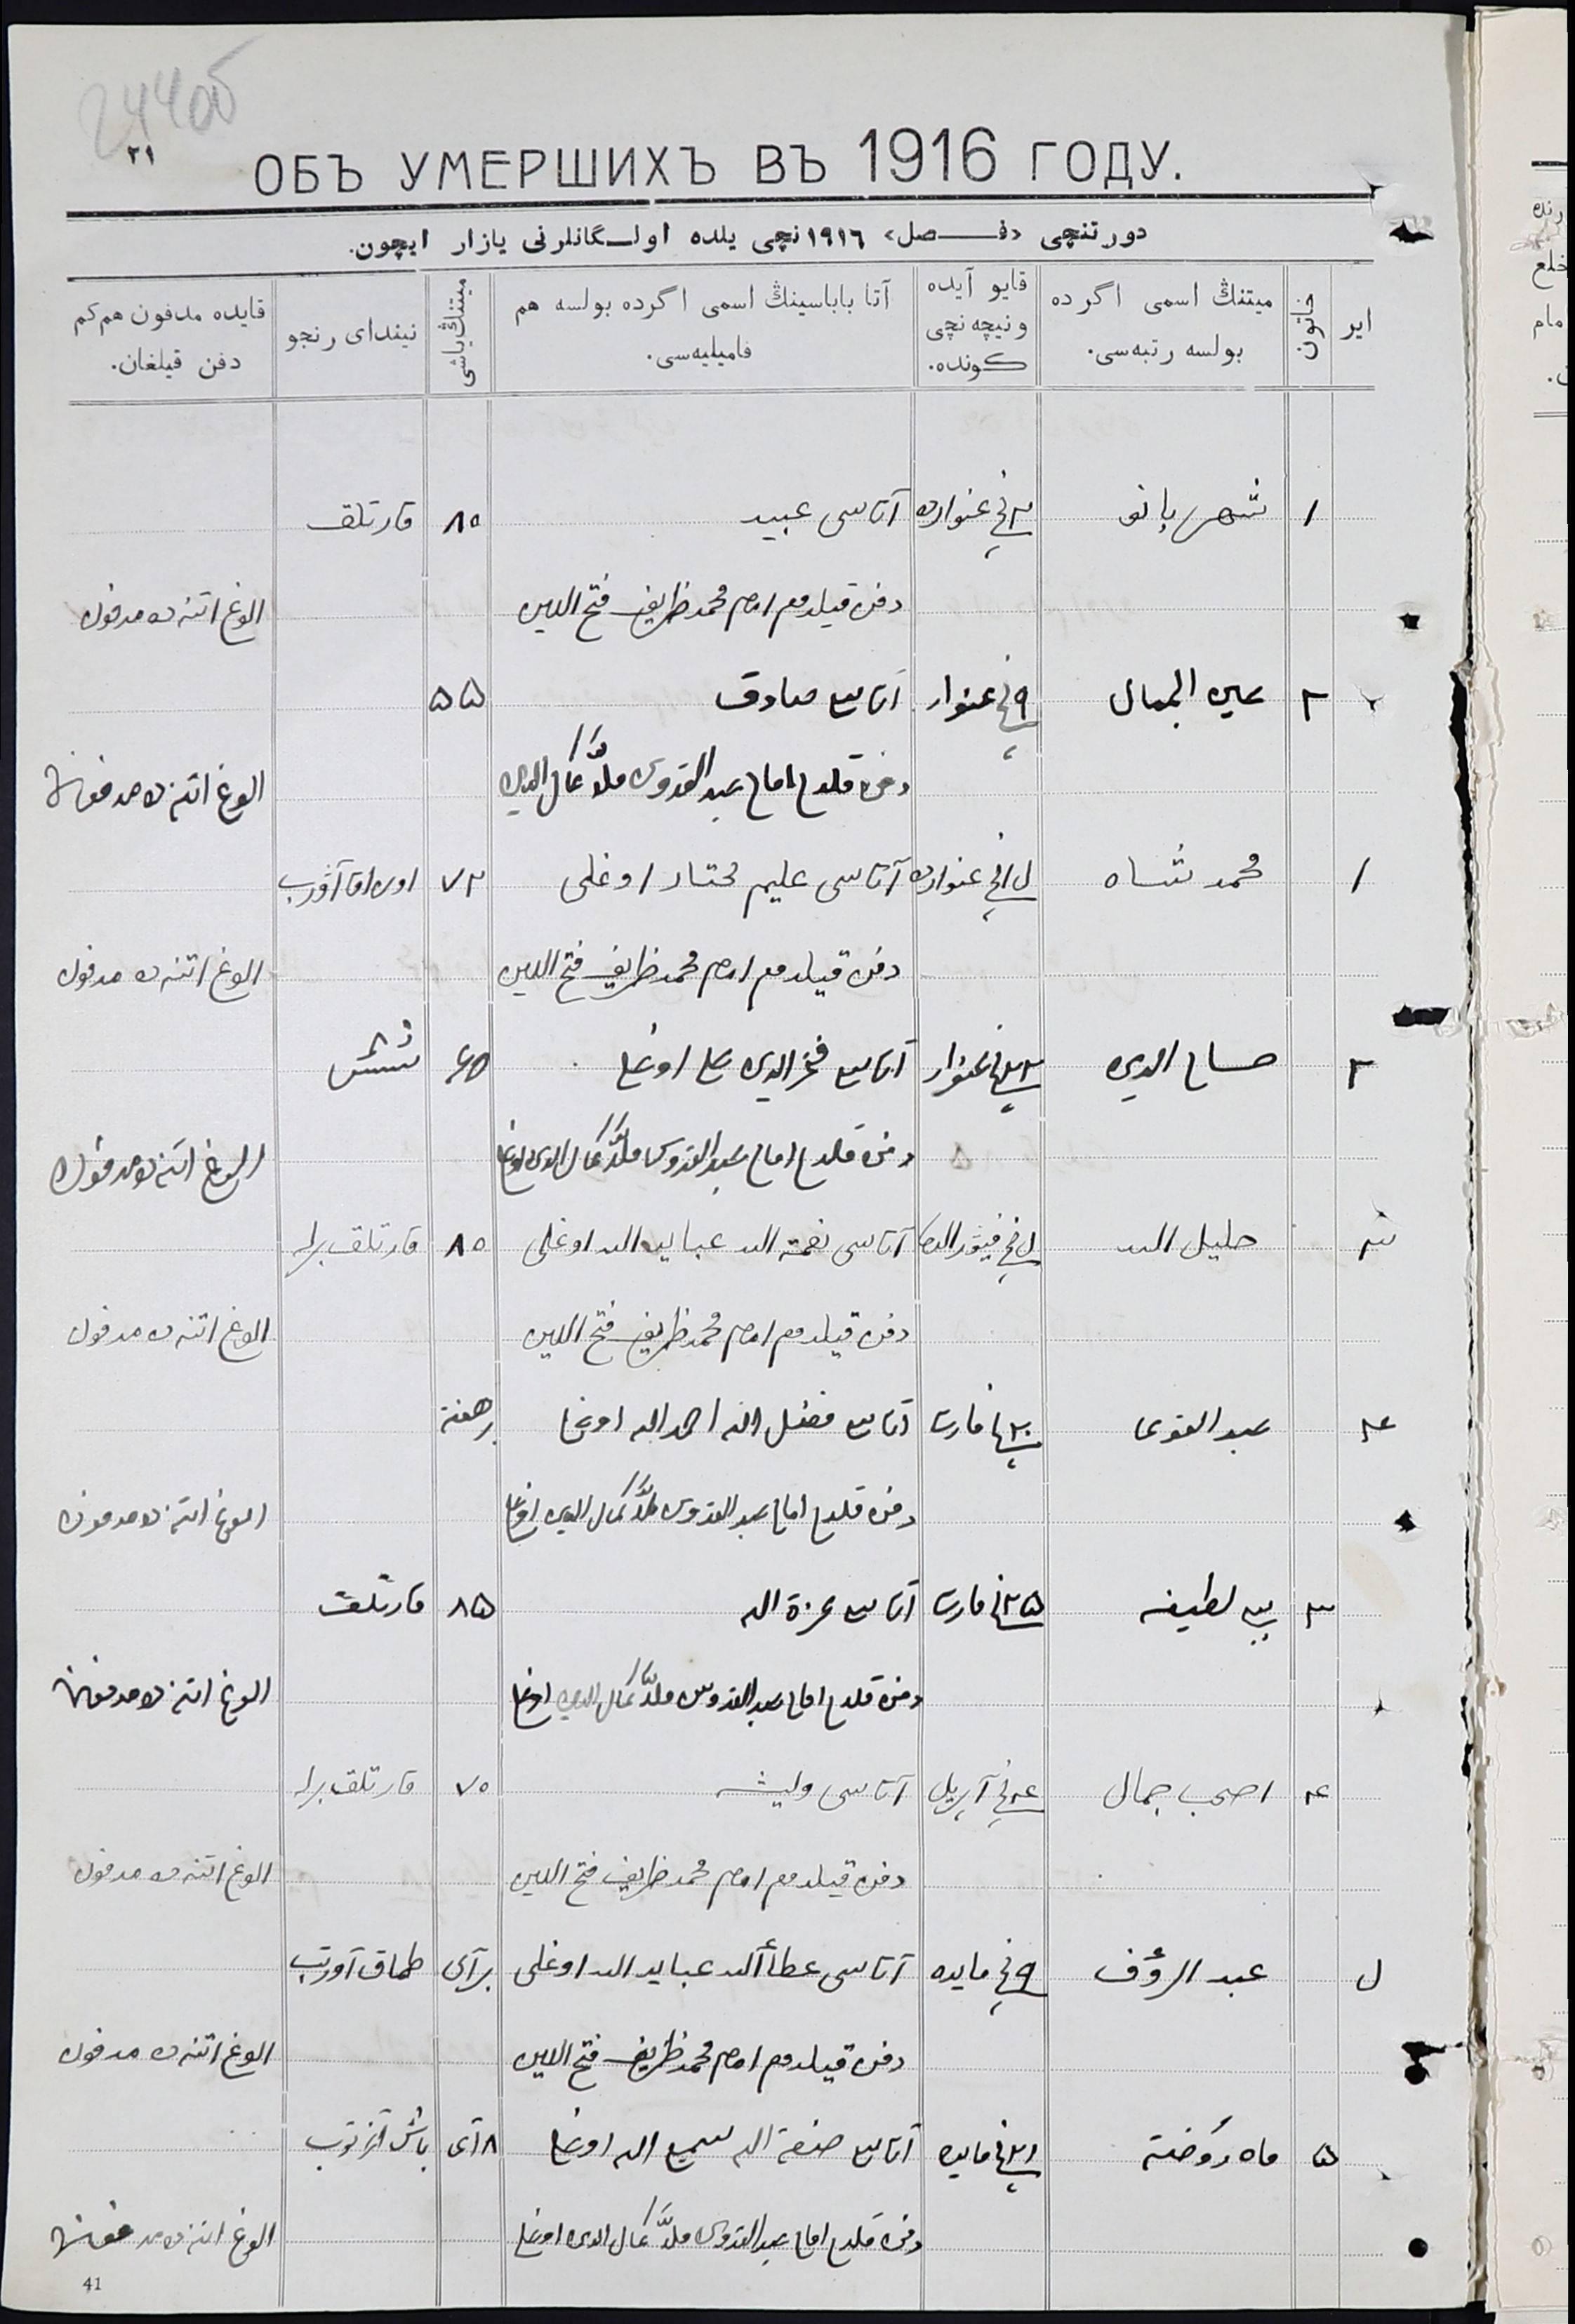 244об
٢١
ОБЪ УМЕРШИХЪ ВЪ 1916 ГОДУ.
دورتنچی «فـصل» ١٩١٦نچی یلده اولـگانلرنی یازار ایچون.
ایر
خاتون
میتنڭ اسمی اگر ده بولسه رتبه‌سی.
قایو آیده ونیچه نچی کونده.
آتا باباسینڭ اسمی اگرده بولسه هم فامیلیه‌سی.
میتنڭ یاشی
نیندای رنجو
قایده مدفون هم کم دفن قیلغان.
١ شهربانو ٣نچی غنوارده آتاسی عبید ٨٥ قارتلق
دفن قیلدم امام محمد ظریف فتح الدین الوغ اتنه ده مدفون
٢ عین الجمال ٩نچی غنوار آتاسی صادق ٥٥
دفن قلدم امام عبد القدوس ملا کمال الدین الوغ اتنه ده مدفون
١ محمد شاه غنوارده آتاسی علیم مختار اوغلی ٧٣
دفن قیلدم امام محمد ظریف فتح الدین الوغ اتنه ده مدفون
٢ حسام الدین غنوار آتاسی فخر الدین علی اوغلی ٤٥ شش
دفن قلدم امام عبد القدوس ملا کمال الدین اوغلی الوغ اتنه ده مدفون
٣ خلیل الله آتاسی نعمة الله عباید الله اوغلی ٨٥ قارتلق برله
دفن قیلدم امام محمد ظریف فتح الدین الوغ اتنه ده مدفون
٤ عبد القوی ٢٠نچی مارت آتاسی فضل الله احمد الله اوغلی بر هفته
دفن قلدم امام عبد القدوس ملا کمال الدین اوغلی الوغ اتنه ده مدفون
٣ بیبی لطیفه ٢٥نچی مارت آتاسی عزة الله ٨٥ قارتلق
دفن قلدم امام عبد القدوس ملا کمال الدین اوغلی الوغ اتنه ده مدفون
٤ اصحب جمال ٤نچی آپریل آتاسی ولیشه ٧٥ قارتلق برله
دفن قیلدم امام محمد ظریف فتح الدین الوغ اتنه ده مدفون
٥ عبد الرؤف ٩نچی مایده آتاسی عطأ الله عباید الله اوغلی بر آی طماق آورتب
دفن قیلدم امام محمد ظریف فتح الدین الوغ اتنه ده مدفون
٥ ماه روضته ٢١نچی مایده آتاسی صنعة الله سمیع الله اوغلی ٨ آی باش
دفن قلدم امام عبد القدوس ملا کمال الدین اوغلی الوغ اتنه ده مدفون
41